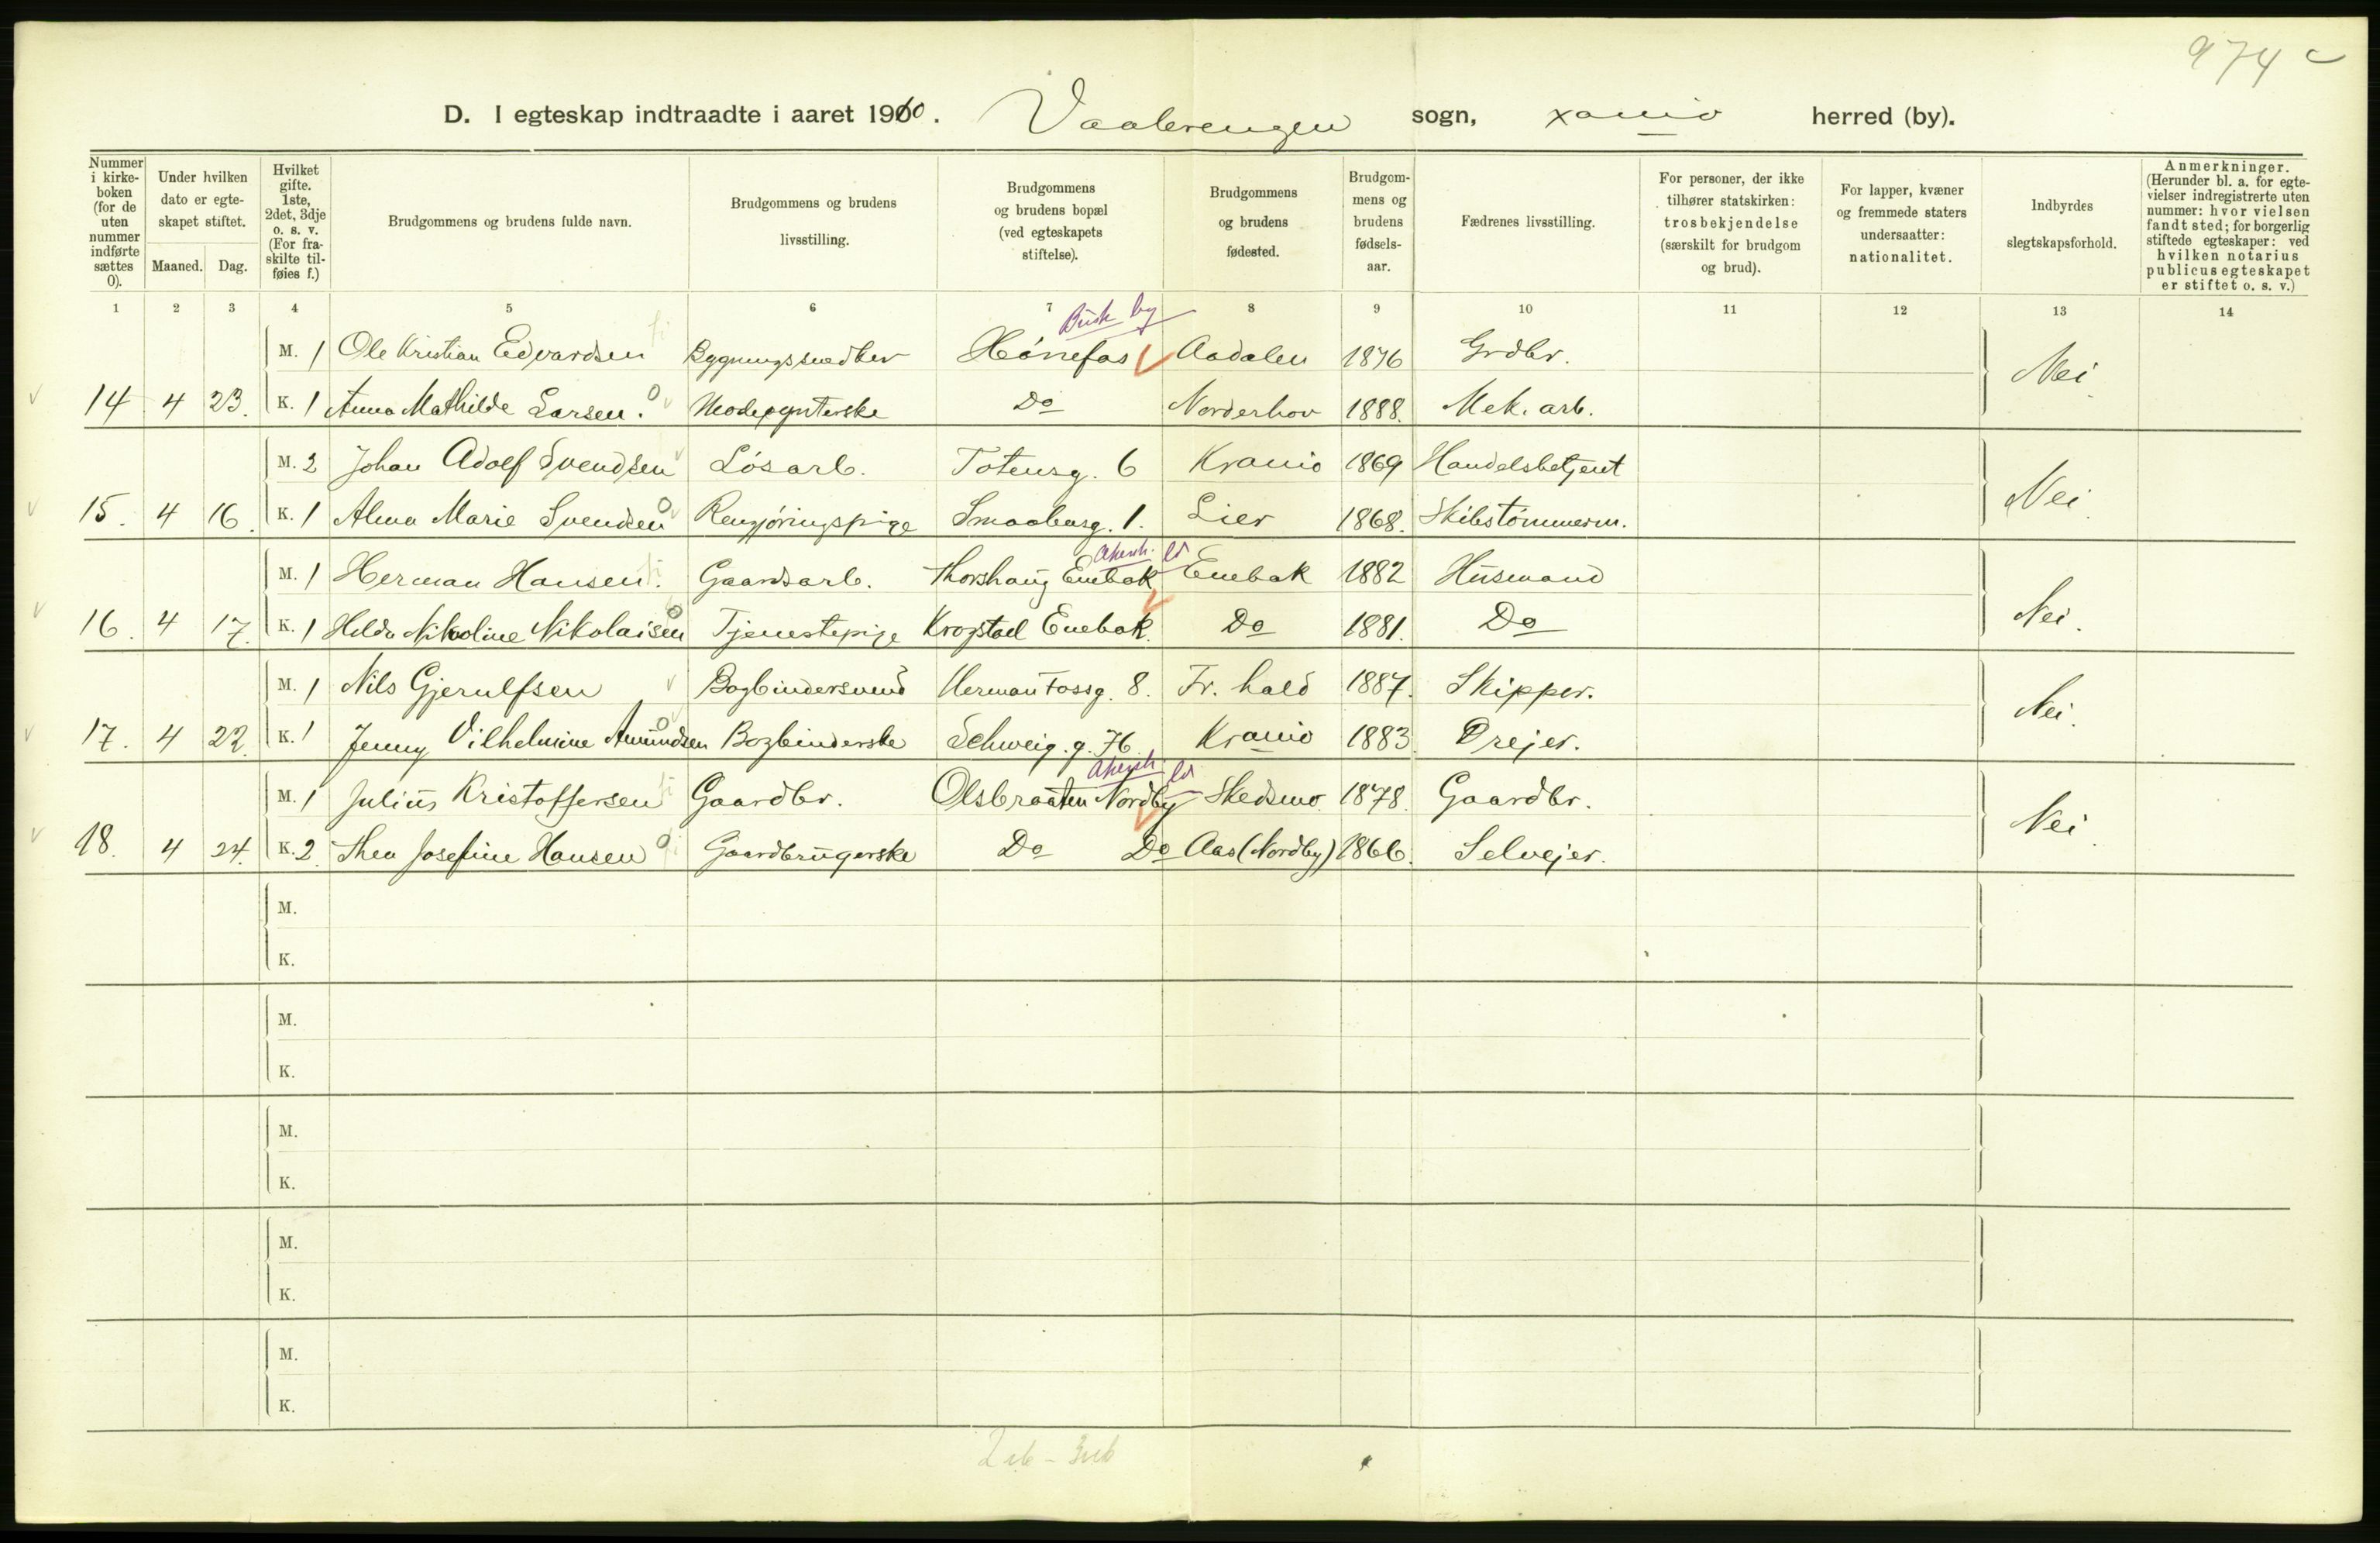 974 c
D. I egteskap indtraadte i aaret 1910. Vaalerengen sogn, Xania herred (by).
Nummer i kirke-boken (for de uten nummer indførte sættes 0).
Under hvilken dato er egte-skapet stiftet.
Maaned. Dag.
Hvilket gifte. 1ste, 2det, 3dje o. s. v. (For fra-skilte til-føies f.)
Brudgommens og brudens fulde navn.
Brudgommens og brudens livsstilling.
Brudgommens og brudens bopæl (ved egteskapets stiftelse).
Brudgommens og brudens fødested.
Brudgom-mens og brudens fødsels-aar.
Fædrenes livsstilling.
For personer, der ikke tilhører statskirken: trosbekjendelse (særskilt for brudgom og brud).
For lapper, kvæner og fremmede staters undersaatter: nationalitet.
Indbyrdes slegtskapsforhold.
Anmerkninger. (Herunder bl. a. for egte-vielser indregistrerte uten nummer: hvor vielsen fandt sted; for borgerlig stiftede egteskaper: ved hvilken notarius publicus egteskapet er stiftet o. s. v.)
1 2 3 4 5 6 7 8 9 10 11 12 13 14
Busk by
M. 1 Ole Kristian Edvardsen Bygningssnedker Hönefos Aadalen 1876 Grdbr.
14 4 23. K. 1 Anna Mathilde Larsen. Modepynterske Do Norderhov 1888. Mek. arb. Nei
M. 2 Johan Adolf Svendsen Lösarb. Totensg. 6 Krania 1869 Handelsbetjent
15. 4 16. K. 1 Alma Marie Svendsen Rengjöringspige Smaalensg. 1. Lier 1868. Skibstömmerm. Nei
Akersh. ld
M. 1 Herman Hansen. Gaardsarb. Thorshaug Enebak Enebak 1882 Husmand
16. 4 17. K. 1 Hilda Nikoline Nikolaisen Tjenestepige Krogstad Enebak. Do 1881. Do Nei.
M. 1 Nils Gjerulfsen Bogbindersvend Herman Fossg. 8. Fr. hald 1887. Skipper.
17. 4 22. K. 1 Jenny Vilhelmine Amundsen Bogbinderske Schweig. g. 76 Krania 1883. Drejer. Nei.
Akersh. ld
M. 1 Julius Kristoffersen Gaardbr. Olsbraaten Nordby Skedsmo. 1878. Gaardbr.
18. 4 24. K. 2. Thea Josefine Hansen Gaardbrugerske Do Do Aas (Nordby) 1866. Selvejer. Nei
M.
K.
M.
K.
M.
K.
M.
K.
M.
K.